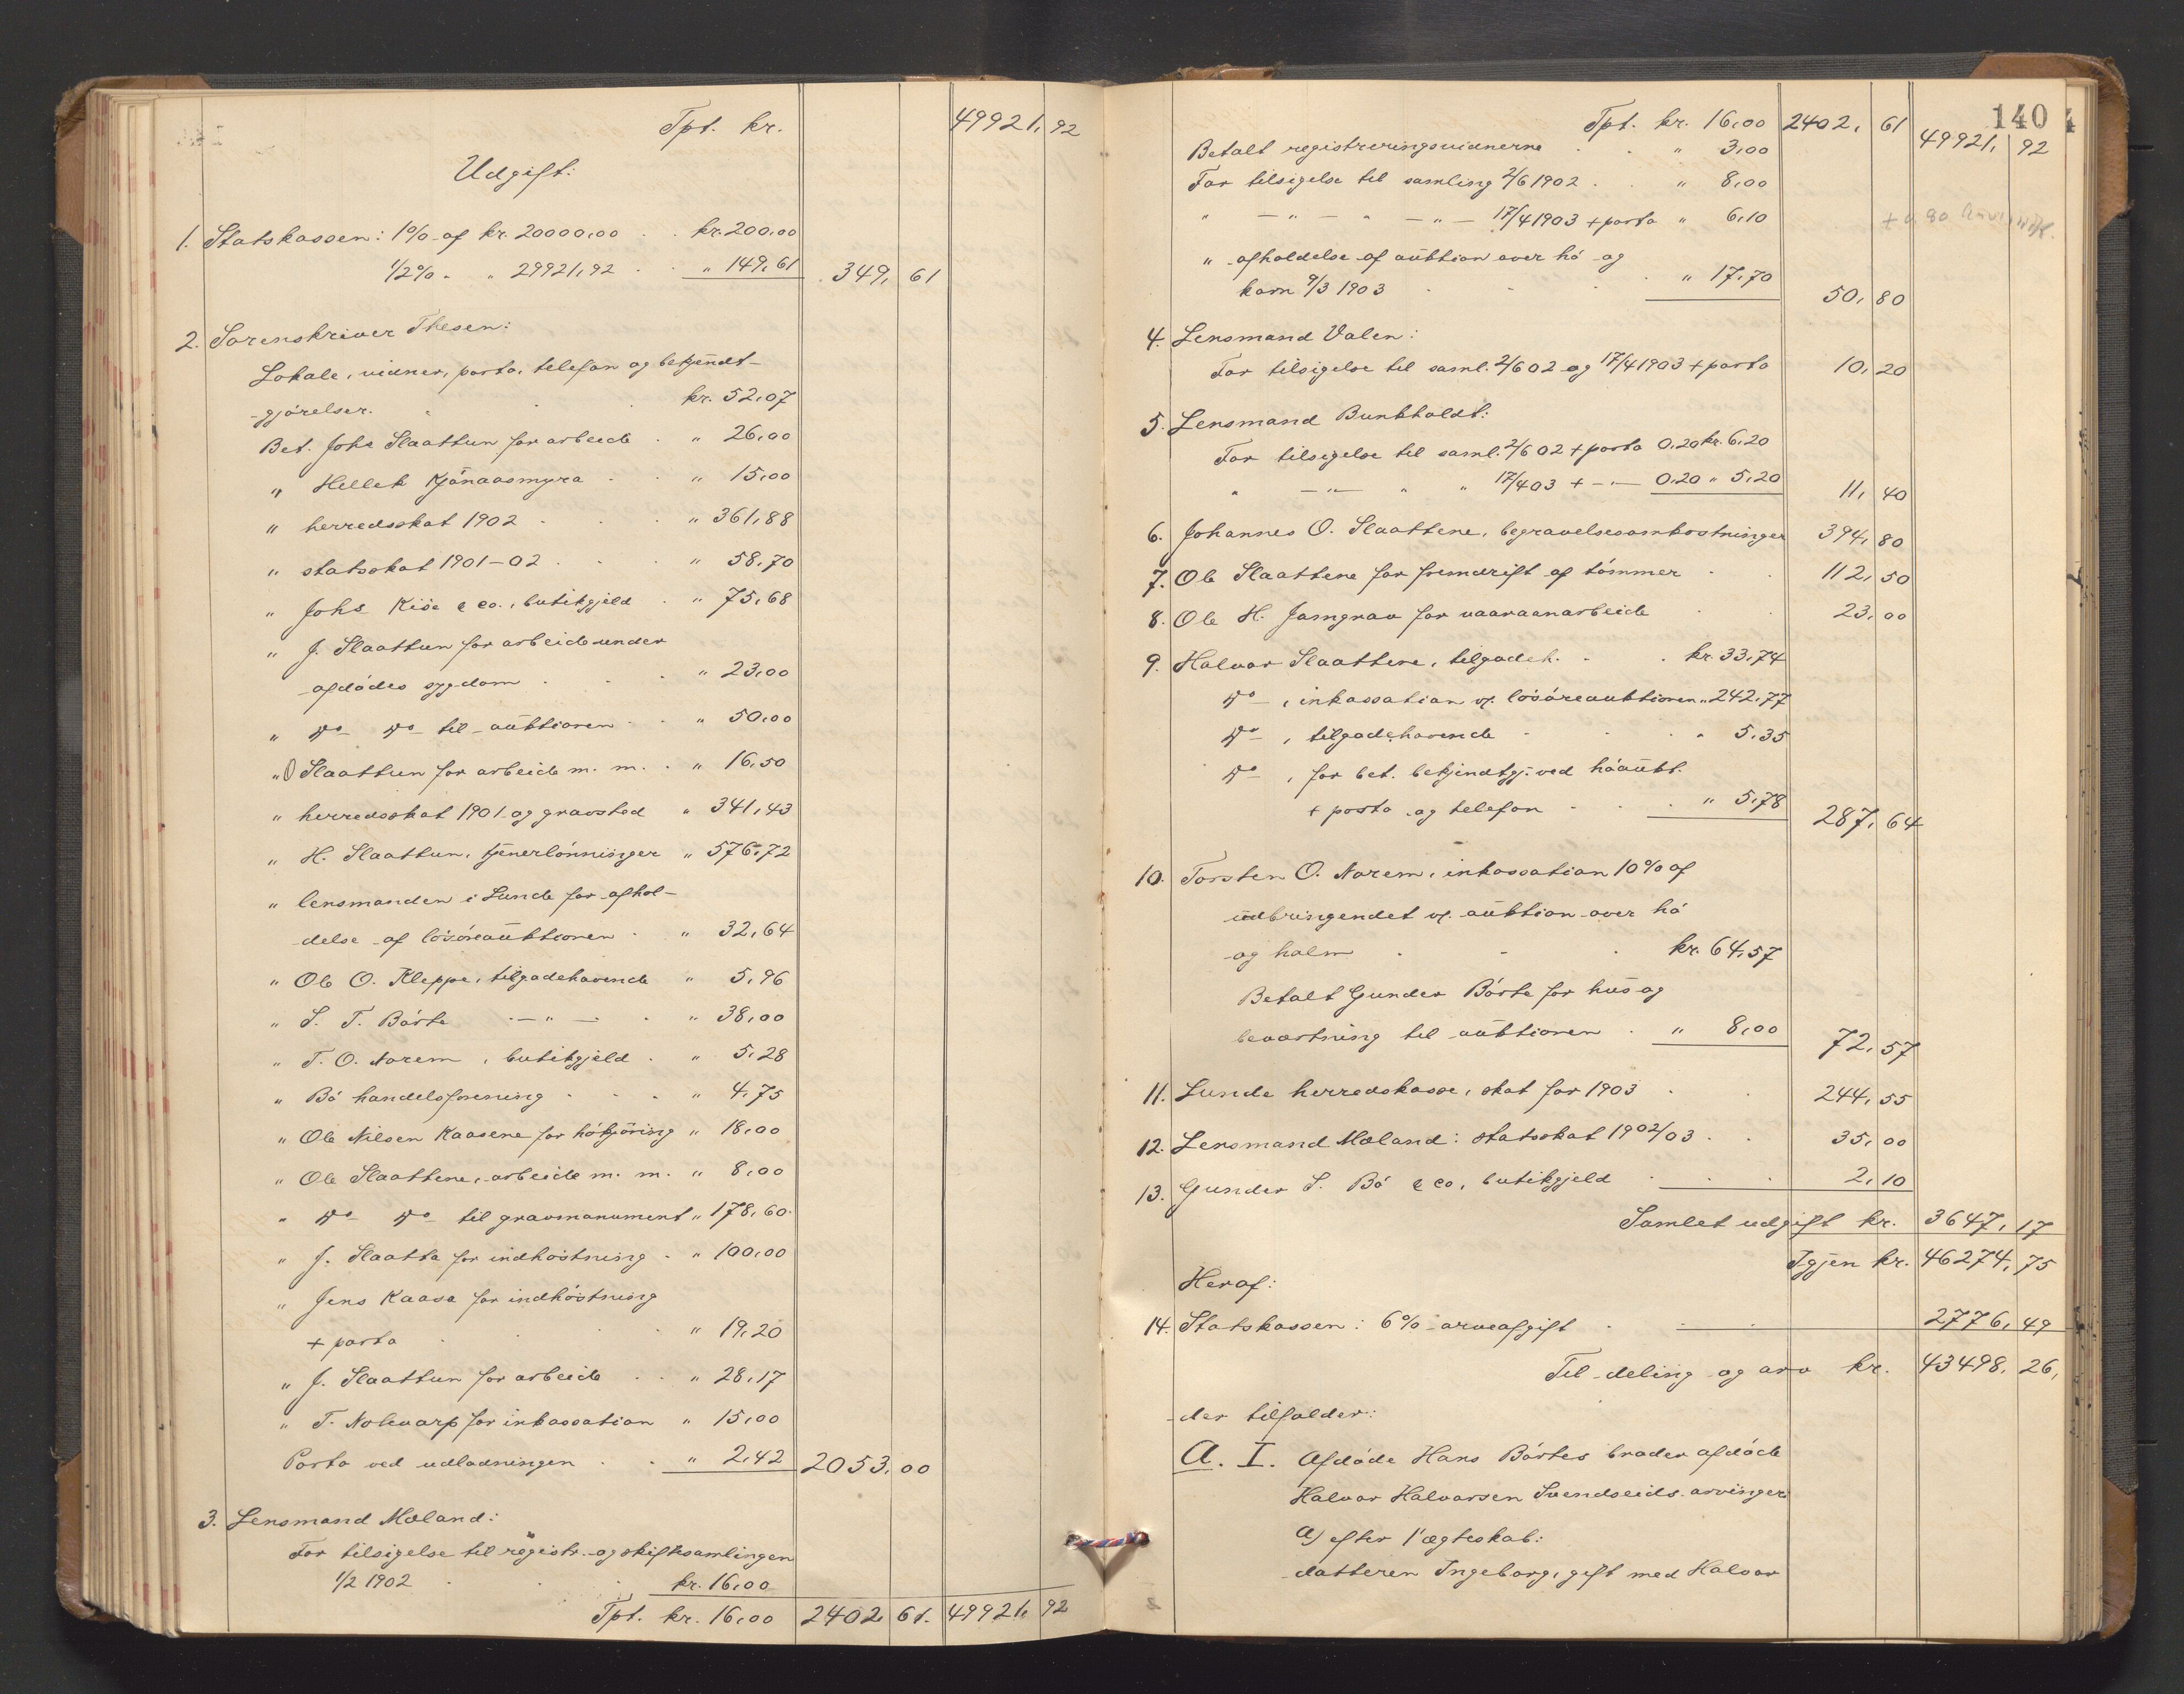 Tpt. kr. 49921,92
Udgift:
1. Statskassen: 1% af kr. 20000,00 . . kr. 200,00
1/2% " " 29921,92 . . " 149,61 349,61
2. Sorenskriver Thesen:
Lokale, vidner, porto, telefon og bekjendt-
-gjörelser. . . . kr. 52,07
Bet. Johs Slaattun for arbeide . " 26,00
" Hellek Kjönaasmyra . . " 15,00
" herredsskat 1902 . . . " 361,88
" statsskat 1901-02 . . . " 58,70
" Johs Kise & co., butikgjeld . " 75,68
" J. Slaattun for arbeide under
afdödes sygdom . . . " 23,00
" do do til auktionen . . " 50,00
" O Slaattun for arbeide m. m. . " 16,50
" herredsskat 1901 og gravsted " 341,43
" H. Slaattun, tjenerlönninger " 576,72
" lensmanden i Lunde for afhol-
delse af lösöreauktionen . " 32,64
" Ole O. Kleppe, tilgodehavende " 5,96
" S. T. Börte - " - . " 38,00
" T. O. Norem, butikgjeld . " 5,28
" Bö handelsforening . . . " 4,75
" Ole Nilsen Kaasene for hökjöring " 18,00
" Ole Slaattene, arbeide m. m. " 8,00
" do do til gravmonument " 178,60
" J. Slaatta for indhöstning . " 100,00
" Jens Kaasa for indhöstning
+ porto . . . " 19,20
" J. Slaattun for arbeide . . " 28,17
" T. Nolevarp for inkassation " 15,00
Porto ved udlodningen . . " 2,42 2053,00
3. Lensmand Moland:
For tilsigelse til registr.- og skiftesamlingen
1/2 1902 . . . kr. 16,00
Tpt. kr. 16,00 2402 61. 49921,92
140
Tpt. kr. 16,00 2402,61 49921,92
Betalt registreringsvidnerne . . " 3,00
For tilsigelse til samling 2/6 1902 . . " 8,00
" - " - " - " - 17/4 1903 + porto " 6,10
" afholdelse af auktion over hö og
korn 9/3 1903 . . . " 17,70 50,80
4. Lensmand Valen:
For tilsigelse til saml. 2/6 02 og 17/4 1903 + porto 10,20
5. Lensmand Bunkholdt:
For tilsigelse til saml. 2/6 02 + porto 0,20 kr. 6,20
" - " - " " 17/4 03 + - " - 0,20 " 5,20 11,40
6. Johannes O. Slaattene, begravelsesomkostninger 394,80
7. Ole Slaattene for fremdrift af tömmer . . 112,50
8. Ole H. Jamgrav for vaaraanarbeide . . 23,00
9. Halvor Slaattene, tilgodeh. . . kr. 33,74
do - , inkassation v. lösöreauktionen " 242,77
do - , tilgodehavende . . . " 5,35
do - , for bet. bekjendtgj. ved höaukt.
+ porto og telefon . . . " 5,78 287,64
10. Torsten O. Norem, inkassation 10% af
udbringendet v. auktion over hö
og halm . . . kr. 64,57
Betalt Gunder Börte for hus og
beværtning til auktionen . " 8,00 72,57
11. Lunde herredskasse, skat for 1903 . . 244,55
12. Lensmand Moland: statsskat 1902/03 . . 35,00
13. Gunder S. Bö & co, butikgjeld . . . 2,10
Samlet udgift kr. 3647,17
Igjen kr. 46274,75
Heraf:
14. Statskassen: 6% arveafgift . . . 2776,49
Til deling og arv kr. 43498,26,
der tilfalder:
A. I. Afdöde Hans Börtes broder afdöde
Halvor Halvorsen Svendseids arvinger
a) efter 1' ægteskab:
datteren Ingeborg, gift med Halvor